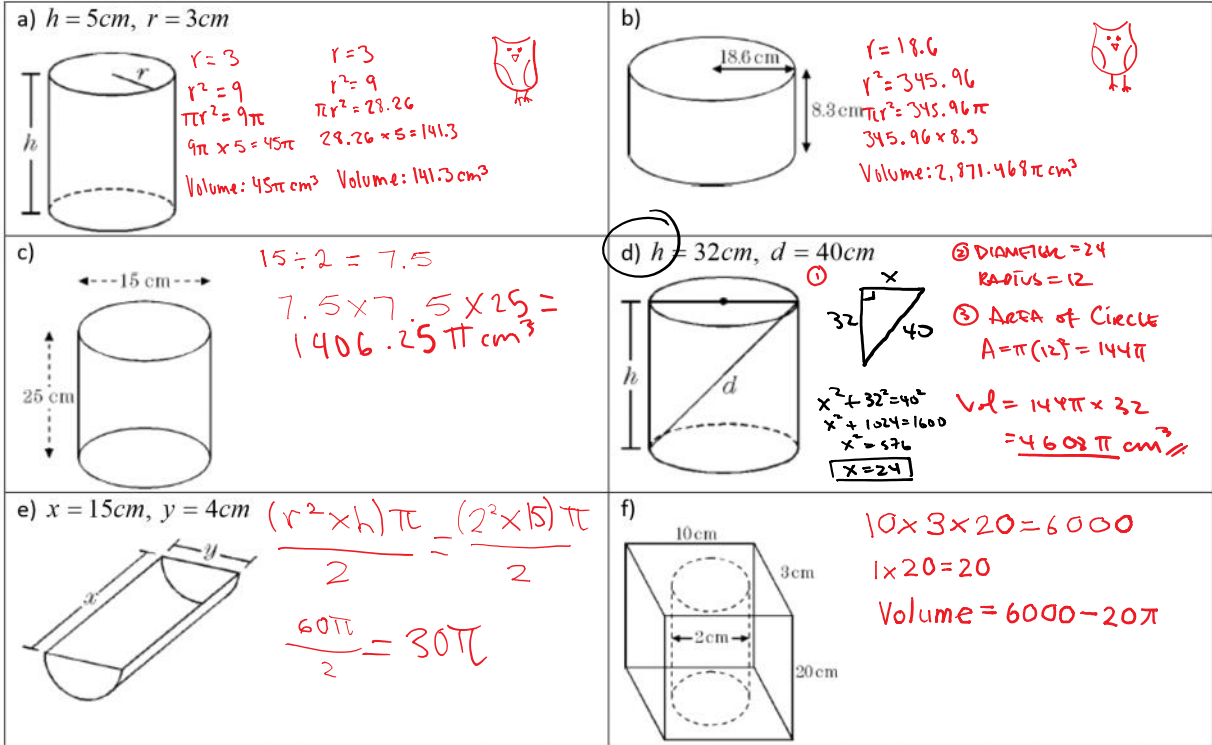 a) h = 5cm, r = 3cm
r
h
r = 3
r² = 9
πr² = 9π
9π × 5 = 45π
Volume: 45π cm³
r = 3
r² = 9
πr² = 28.26
28.26 × 5 = 141.3
Volume: 141.3 cm³
b)
18.6 cm
8.3 cm
r = 18.6
r² = 345.96
πr² = 345.96π
345.96 × 8.3
Volume: 2,871.468π cm³
c)
15 cm
25 cm
15 ÷ 2 = 7.5
7.5 × 7.5 × 25 =
1406.25π cm³
d) h = 32cm, d = 40cm
h
d
①
x
32
40
x² + 32² = 40²
x² + 1024 = 1600
x² = 576
x = 24
② DIAMETER = 24
RADIUS = 12
③ AREA of CIRCLE
A = π(12)² = 144π
Vol = 144π × 32
= 4608π cm³
e) x = 15cm, y = 4cm
y
x
(r² × h)π / 2 = (2² × 15)π / 2
60π / 2 = 30π
f)
10 cm
3 cm
2 cm
20 cm
10 × 3 × 20 = 6000
1 × 20 = 20
Volume = 6000 − 20π